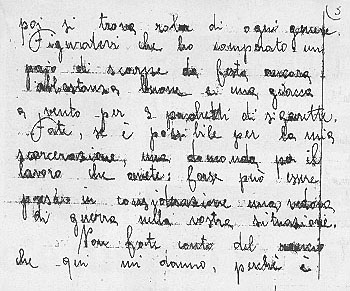 3
poi si trova roba di ogni genere.
Figuratevi che ho comperato un
paio di scarpe da festa ancora
abbastanza buone e una giacca
a vento per 2 pacchetti di sigarette.
Fate, se è possibile per la mia
scarcerazione, una domanda per il
lavoro che avete: forse può essere
preso in considerazione una
di guerra nella vostra situazione.
Non fate conto del
che qui mi danno, perché è